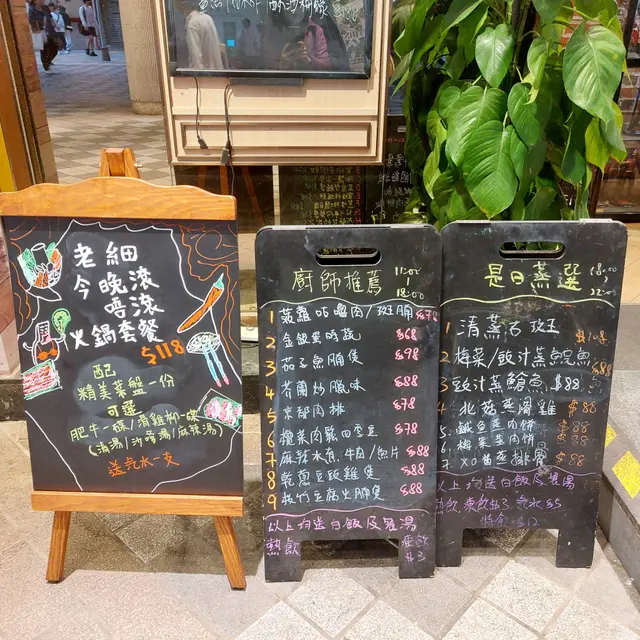 老細
今晚滾
唔滾
火鍋套餐
$118
配
精美菜盤一份
可選
肥牛一碟/滑雞柳一碟
(清湯/沙嗲湯/麻辣湯)
送汽水一支
廚師推薦 11:00
18:00
1 菠蘿咕嚕肉/斑腩 $78
2 $68
3 茄子魚腩煲 $78
4 芥蘭炒臘味 $88
5 京都肉排 $78
6 欖菜肉鬆四季豆 $78
7 麻辣水煮牛肉/魚片 $88
8 乾蔥豆豉雞煲 $88
9 枝竹豆腐火腩煲 $88
以上均送白飯及餐湯
熱飲 凍飲
$3
是日蒸選 18:00
22:00
1 清蒸石斑 $108
2 梅菜/豉汁蒸鯇魚 $88
3 豉汁蒸鱠魚 $88
4 北菇蒸滑雞 $88
5 鹹魚蒸肉餅 $88
6 梅菜蒸肉餅 $88
7 XO醬蒸排骨 $88
以上均送白飯及餐湯
熱飲 凍飲$3 汽水$5
$12